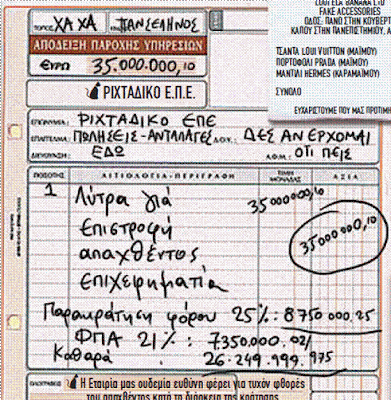 ΖΟΥΓΚΛΑ BANANA LTD
FAKE ACCESSORIES
ΟΔΟΣ: ΠΑΝΩ ΣΤΗΝ ΚΟΥΒΕΡΤ
ΚΑΠΟΥ ΣΤΗΝ ΠΑΝΕΠΙΣΤΗΜΙΟΥ, Α
ΤΣΑΝΤΑ LOUI VUITTON (ΜΑΪΜΟΥ)
ΠΟΡΤΟΦΟΛΙ PRADA (ΜΑΪΜΟΥ)
ΜΑΝΤΙΛΙ HERMES (ΚΑΡΑΜΑΪΜΟΥ)
ΣΥΝΟΛΟ
ΕΥΧΑΡΙΣΤΟΥΜΕ ΠΟΥ ΜΑΣ ΠΡΟΤΙΜ
ΤΟΠΟΣ ΧΑ ΧΑ ΠΑΝΣΕΛΗΝΟΣ
ΑΠΟΔΕΙΞΗ ΠΑΡΟΧΗΣ ΥΠΗΡΕΣΙΩΝ
Ευρώ 35.000.000,10
ΡΙΧΤΑΔΙΚΟ Ε.Π.Ε.
ΕΠΩΝΥΜΙΑ: ΡΙΧΤΑΔΙΚΟ ΕΠΕ
ΕΠΑΓΓΕΛΜΑ: ΠΩΛΗΣΕΙΣ-ΑΝΤΑΛΛΑΓΕΣ Δ.Ο.Υ.: ΔΕΣ ΑΝ ΕΡΧΟΜΑΙ
ΔΙΕΥΘΥΝΣΗ: ΕΔΩ Α.Φ.Μ.: ΟΤΙ ΠΕΙΣ
ΠΟΣΟΤΗΣ ΑΙΤΙΟΛΟΓΙΑ-ΠΕΡΙΓΡΑΦΗ ΤΙΜΗ ΜΟΝΑΔΟΣ ΑΞΙΑ
1 Λύτρα γιά 35000000,10
επιστροφή 35000000,10
απαχθέντος
επιχειρηματία
Παρακράτηση φόρου 25%: 8750000.25
ΦΠΑ 21%: 7350000.02/
Καθαρά 26.249.999.975
Η Εταιρία μας ουδεμία ευθύνη φέρει για τυχόν φθορές
του απαχθέντος κατά τη διάρκεια της κράτησης